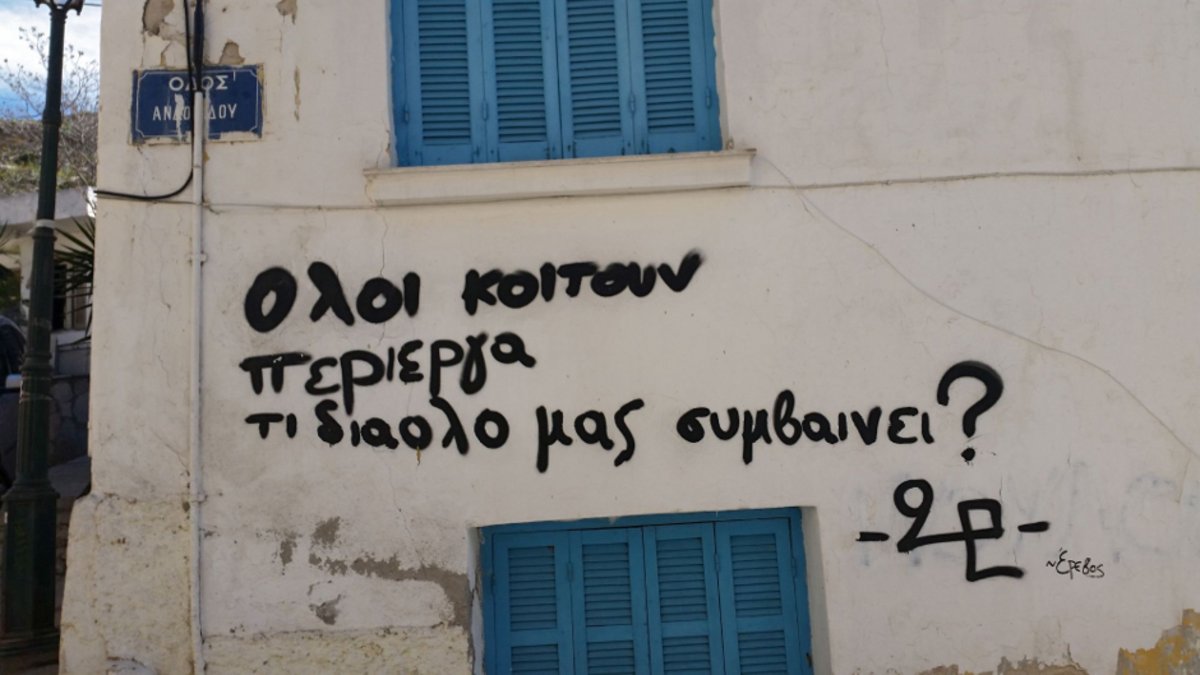 ΟΔΟΣ
Ολοι κοιτουν
περιεργα
τι διαολο μας συμβαινει?
~Ερεβος